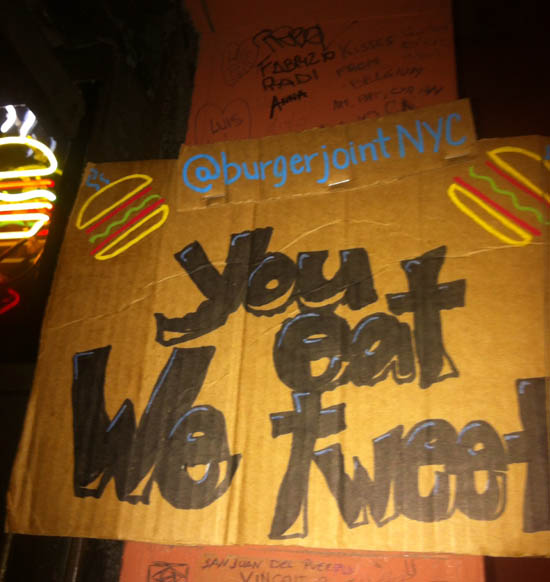 FABRIZIO
RADI
ANNA
KISSES
FROM
BELGIUM
LUIS
@burgerjointNYC
you
eat
We Tweet
SAN JUAN DEL